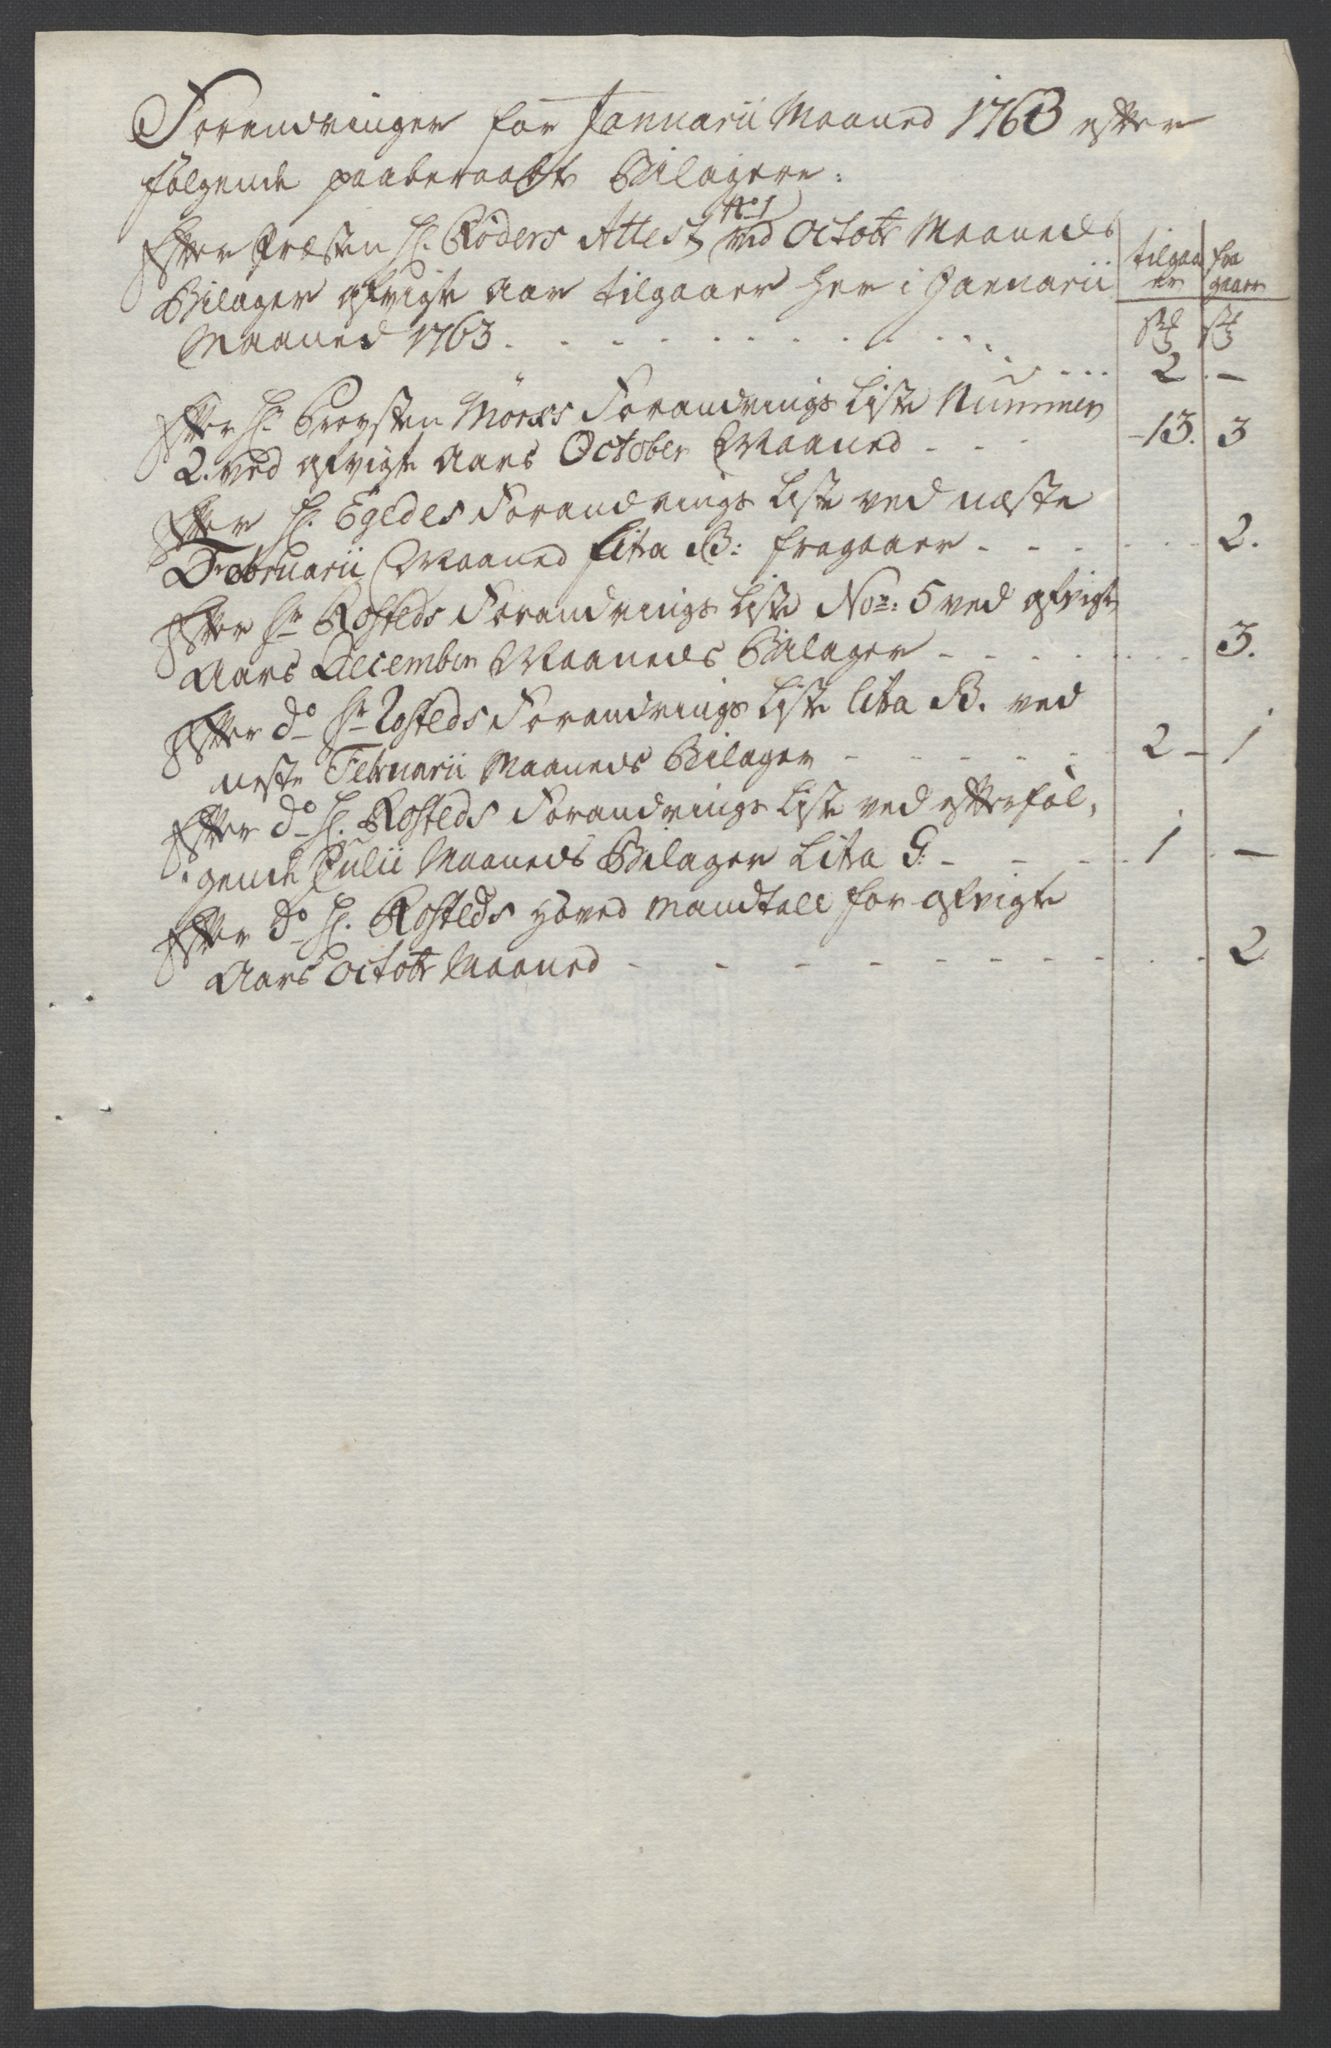 Forandringer for Januarii Maaned 1763 efter
følgende paaberaabte Bilagere:
No 1
Efter Præsten H. Röders Attest ved Octobr Maaneds
Bilager afvigte Aar tilgaaer her i Januarii
Maaned 1763
tilgaa fra
er gaaer
2 —
Efter Hr. Provsten Mörcks Forandrings Liste Nummer
2. ved afvigte Aars October Maaned - - - 13. 3
Efter H. Egedes Forandrings Liste ved næste
Februarii Maaned Lita B: fragaaer - - - 2.
Efter Hr Rosteds Forandrings Liste No: 5 ved afvigte
Aars December Maaneds Bilager - - - 3.
Efter do Hr Rosteds Forandrings Liste lita B. ved
neste Februarii Maaneds Bilager - - - 2 — 1
Efter do H. Rosteds Forandrings Liste ved efterføl,
gende Julii Maaneds Bilager Lita G: - - - 1 —
Efter do H. Rosteds Hoved Mandtall for afvigte
Aars Octobr Maaned - - - 2